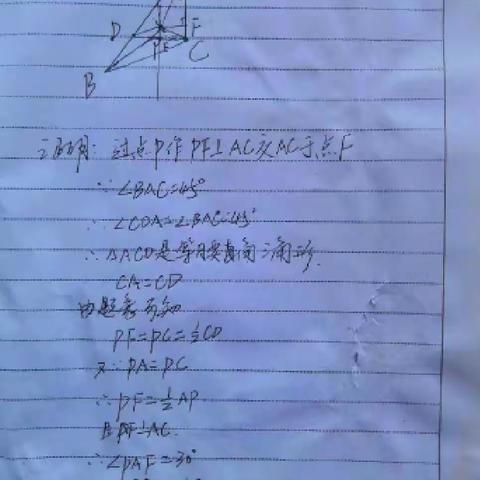 D
F
P
E
C
B
证明：过点P作PF⊥AC交AC于点F
∵∠BAC=45°
∴∠CDA=∠BAC=45°
∴△ACD是等腰直角三角形.
CA=CD
由题意可知
PF=PC=½CD
又∵PA=PC
∴PF=½AP
且PF⊥AC.
∴∠PAF=30°